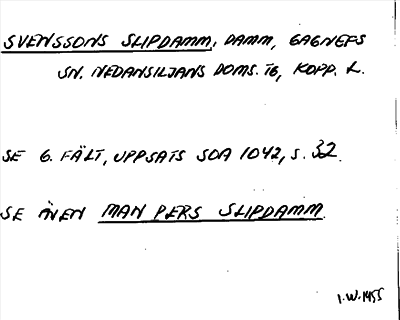 SVENSSONS SLIPDAMM, DAMM, GAGNEFS
SN. NEDANSILJANS DOMS. TG, KOPP. L.
SE 6. FÄLT, UPPSATS SOA 1042, S. 32.
SE ÄVEN MAN PERS SLIPDAMM.
I.W. 1955